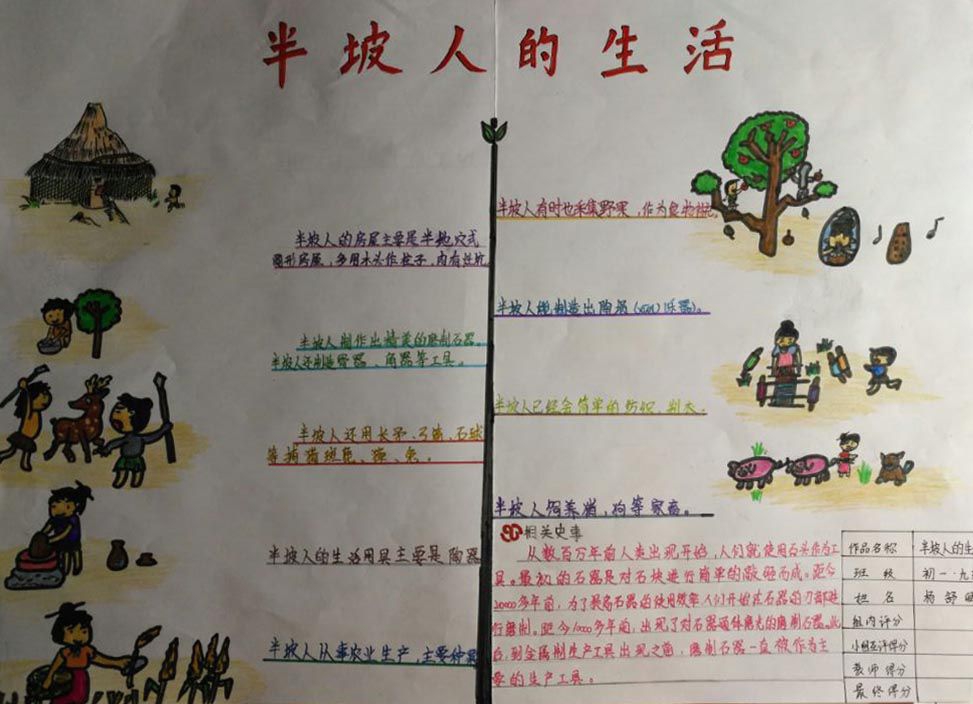 半坡人的生活
半坡人的房屋主要是半地穴式
圆形房屋，多用木头作柱子，内有灶坑
半坡人制作出精美的磨制石器。
半坡人还制造骨器、角器等工具。
半坡人还用长矛、弓箭、石球
等捕猎斑鹿、獐、兔。
半坡人的生活用具主要是陶器
半坡人从事农业生产，主要种
半坡人有时也采集野果，作为食物
半坡人能制造出陶埙(xūn)(乐器)。
半坡人已经会简单的纺织、制衣。
半坡人饲养猪，狗等家畜。
相关史事
从数百万年前人类出现开始，人们就使用石头作为工
具。最初的石器是对石块进行简单的敲砸而成。距今
20000多年前，为了提高石器的使用效率人们开始在石器的刃部进
行磨制。距今1000多年前，出现了对石器通体磨光的磨制石器。此
后，到金属制生产工具出现之前，磨制石器一直被作为主
要的生产工具。
作品名称 半坡人的生
班级 初一·九
姓名 杨舒
组内评分
小组互评得分
教师得分
最终得分